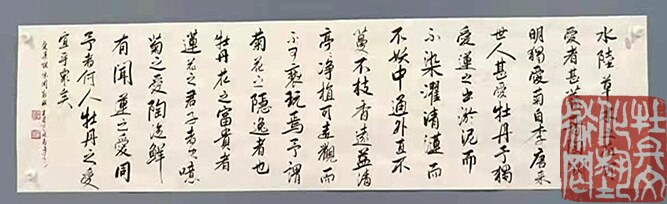 水陸草
愛者甚蕃
明獨愛菊自李唐来
世人甚愛牡丹予獨
愛蓮之出淤泥而
不染濯清漣而
不妖中通外直不
蔓不枝香遠益清
亭净植可遠觀而
不可褻玩焉予謂
菊花之隱逸者也
牡丹花之富貴者
蓮花之君子者噫
菊之愛陶後鮮
有聞蓮之愛同
予者何人牡丹之愛
宜乎衆矣
愛蓮說
牡丹文